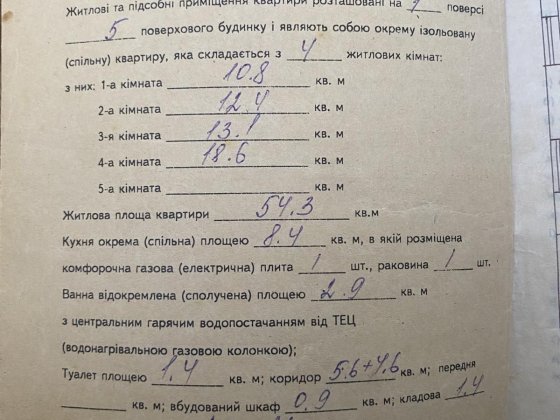 Житлові та підсобні приміщення квартири розташовані на 1 поверсі
5 поверхового будинку і являють собою окрему ізольовану
(спільну) квартиру, яка складається з 4 житлових кімнат:
з них: 1-а кімната 10.8 кв. м
2-а кімната 12.4 кв. м
3-я кімната 13.1 кв. м
4-а кімната 18.6 кв. м
5-а кімната кв. м
Житлова площа квартири 54.3 кв.м
Кухня окрема (спільна) площею 8.4 кв. м, в якій розміщена
комфорочна газова (електрична) плита 1 шт., раковина 1 шт.
Ванна відокремлена (сполучена) площею 2.9 кв. м
з центральним гарячим водопостачанням від ТЕЦ
(водонагрівальною газовою колонкою);
Туалет площею 1.4 кв. м; коридор 5.6+4.6 кв. м; передня
кв. м; вбудований шкаф 0.9 кв. м; кладова 1.4